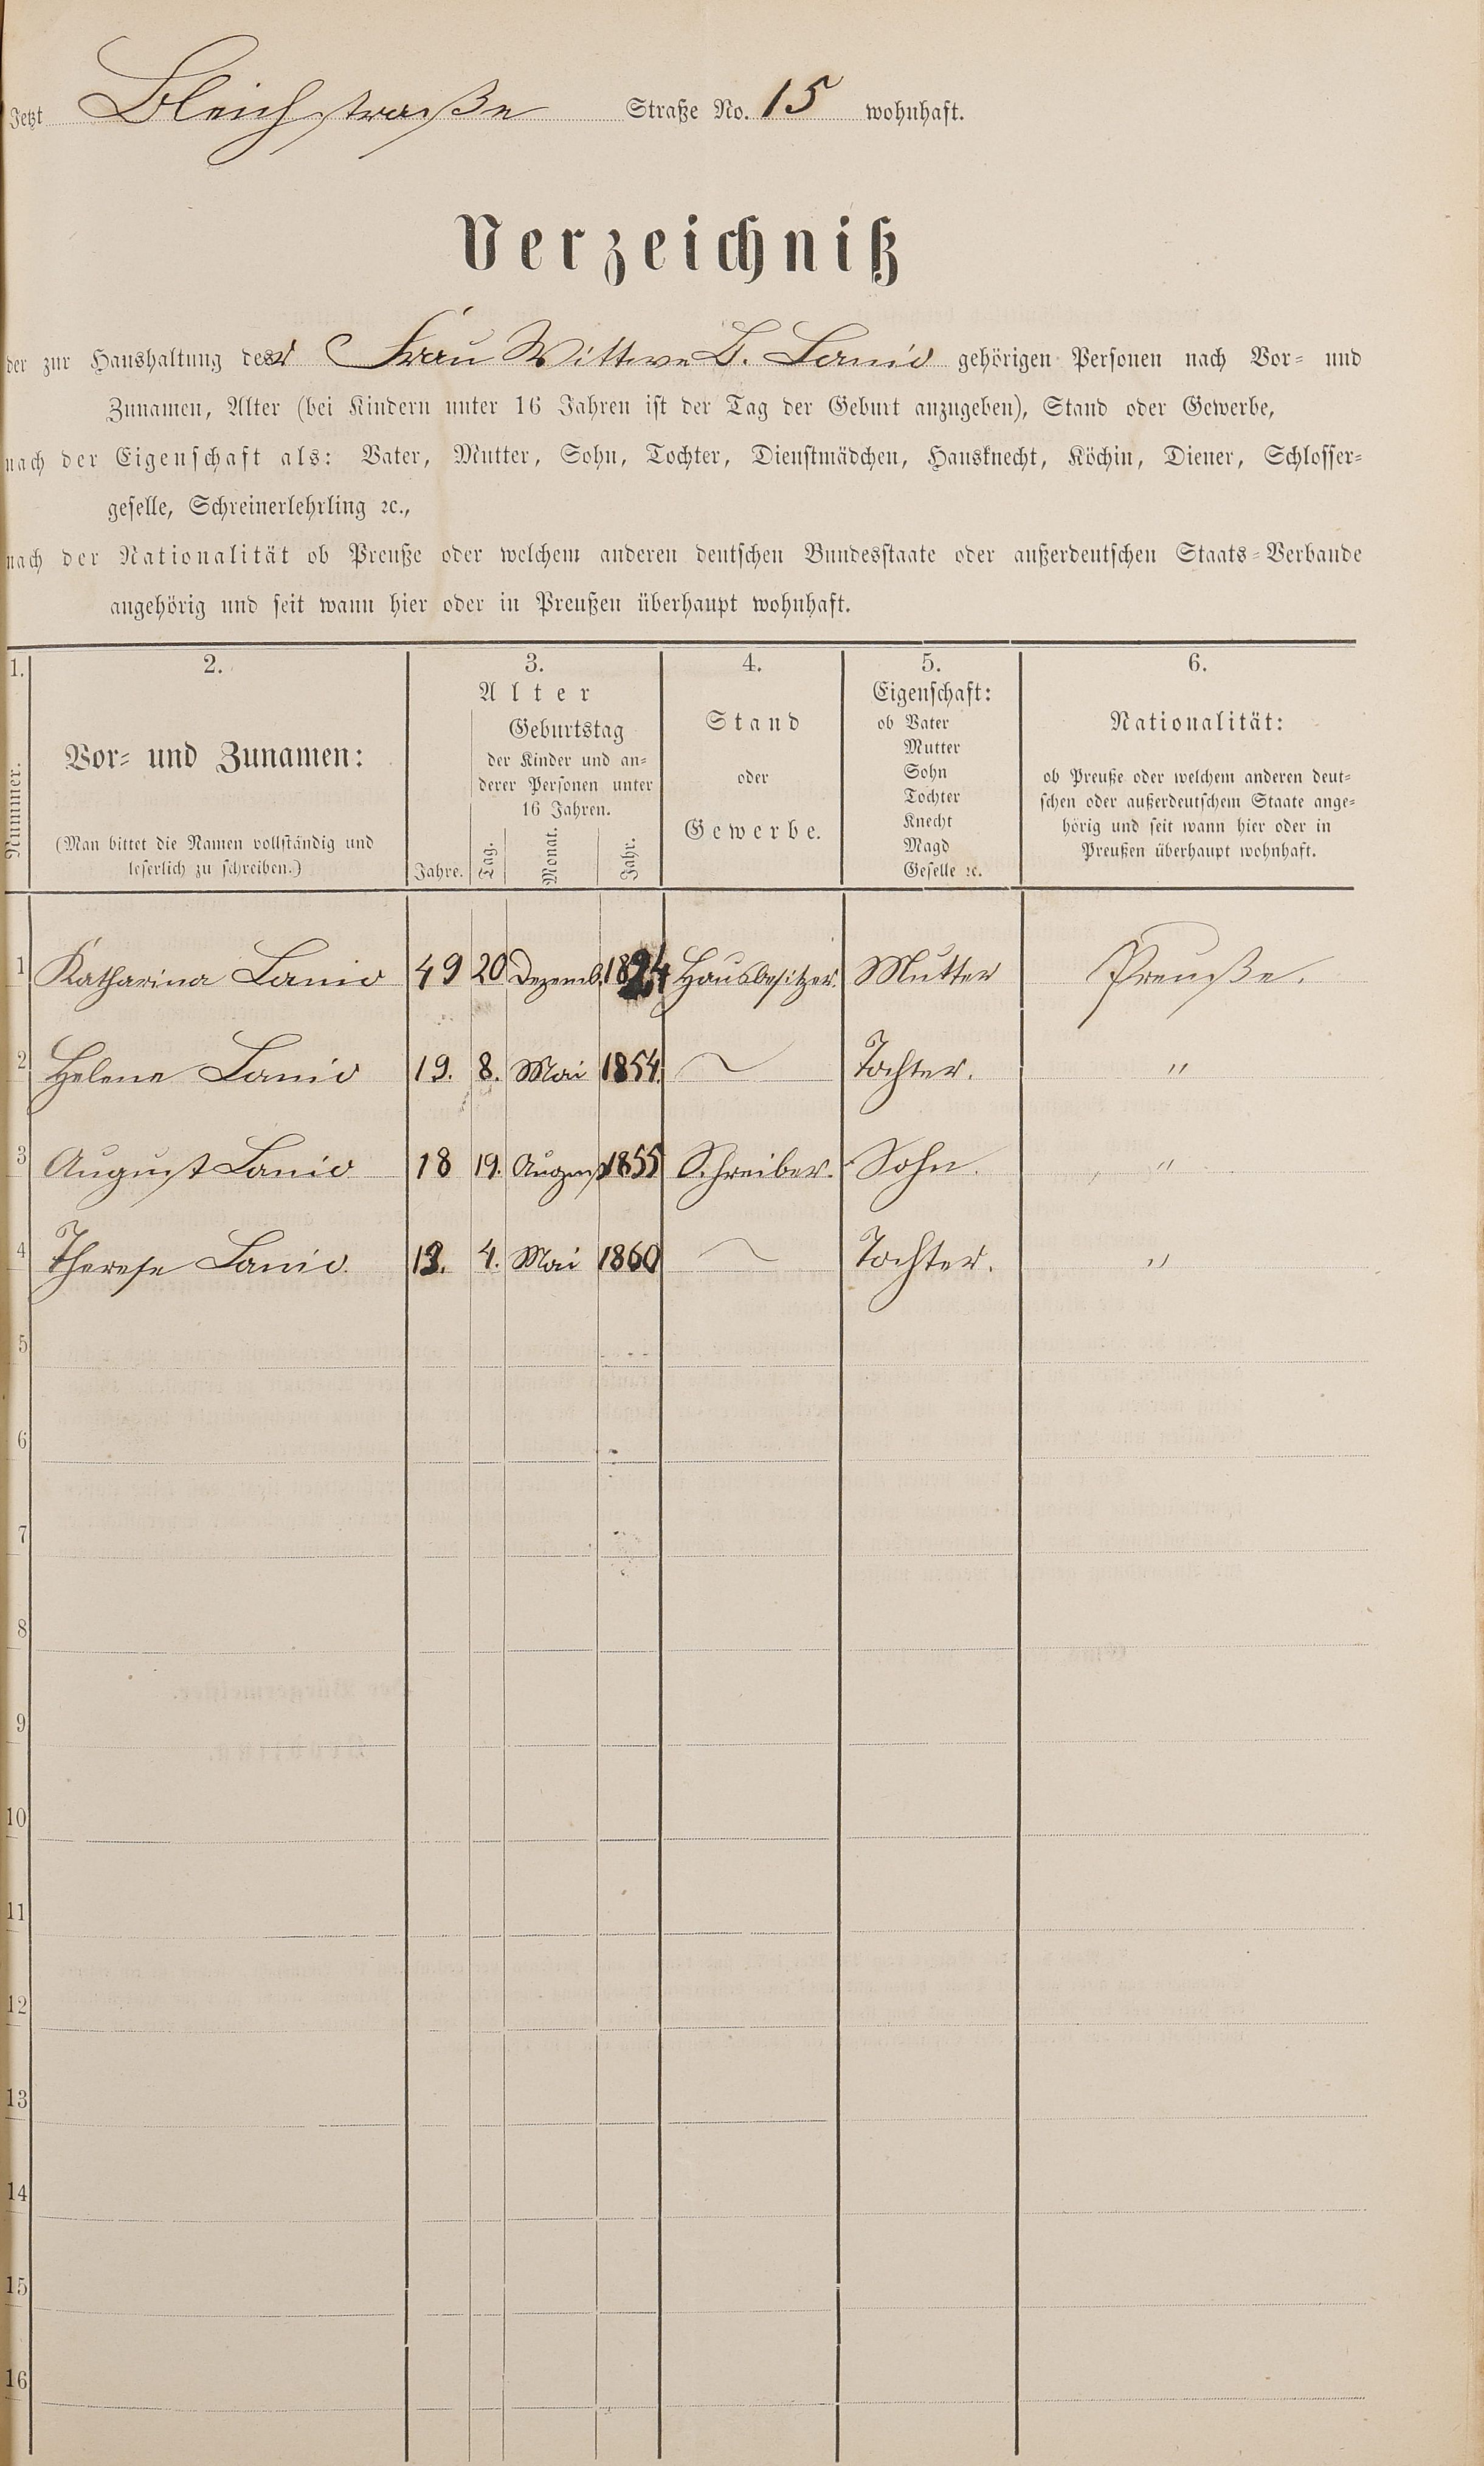 Jetzt Bleichstraße Straße No. 15 wohnhaft.
Verzeichniß
der zur Haushaltung der Frau Wittwe L. Lanio gehörigen Personen nach Vor- und
Zunamen, Alter (bei Kindern unter 16 Jahren ist der Tag der Geburt anzugeben), Stand oder Gewerbe,
nach der Eigenschaft als: Vater, Mutter, Sohn, Tochter, Dienstmädchen, Hausknecht, Köchin, Diener, Schlosser-
geselle, Schreinerlehrling ꝛc.,
nach der Nationalität ob Preuße oder welchem anderen deutschen Bundesstaate oder außerdeutschen Staats-Verbande
angehörig und seit wann hier oder in Preußen überhaupt wohnhaft.
1. 2. 3. 4. 5. 6.
Nummer.
Vor- und Zunamen:
(Man bittet die Namen vollständig und
leserlich zu schreiben.)
Alter
Jahre.
Geburtstag
der Kinder und an-
derer Personen unter
16 Jahren.
Tag. Monat. Jahr.
Stand
oder
Gewerbe.
Eigenschaft:
ob Vater
Mutter
Sohn
Tochter
Knecht
Magd
Geselle ꝛc.
Nationalität:
ob Preuße oder welchem anderen deut-
schen oder außerdeutschem Staate ange-
hörig und seit wann hier oder in
Preußen überhaupt wohnhaft.
1 Katharina Lanio 49 20 Dezemb. 1824 Hausbesitzer. Mutter Preuße.
2 Helene Lanio 19. 8. Mai 1854. Tochter. "
3 August Lanio 18 19. August 1855 Schreiber. Sohn. "
4 Therese Lanio. 13. 4. Mai 1860 Tochter. "
5
6
7
8
9
10
11
12
13
14
15
16